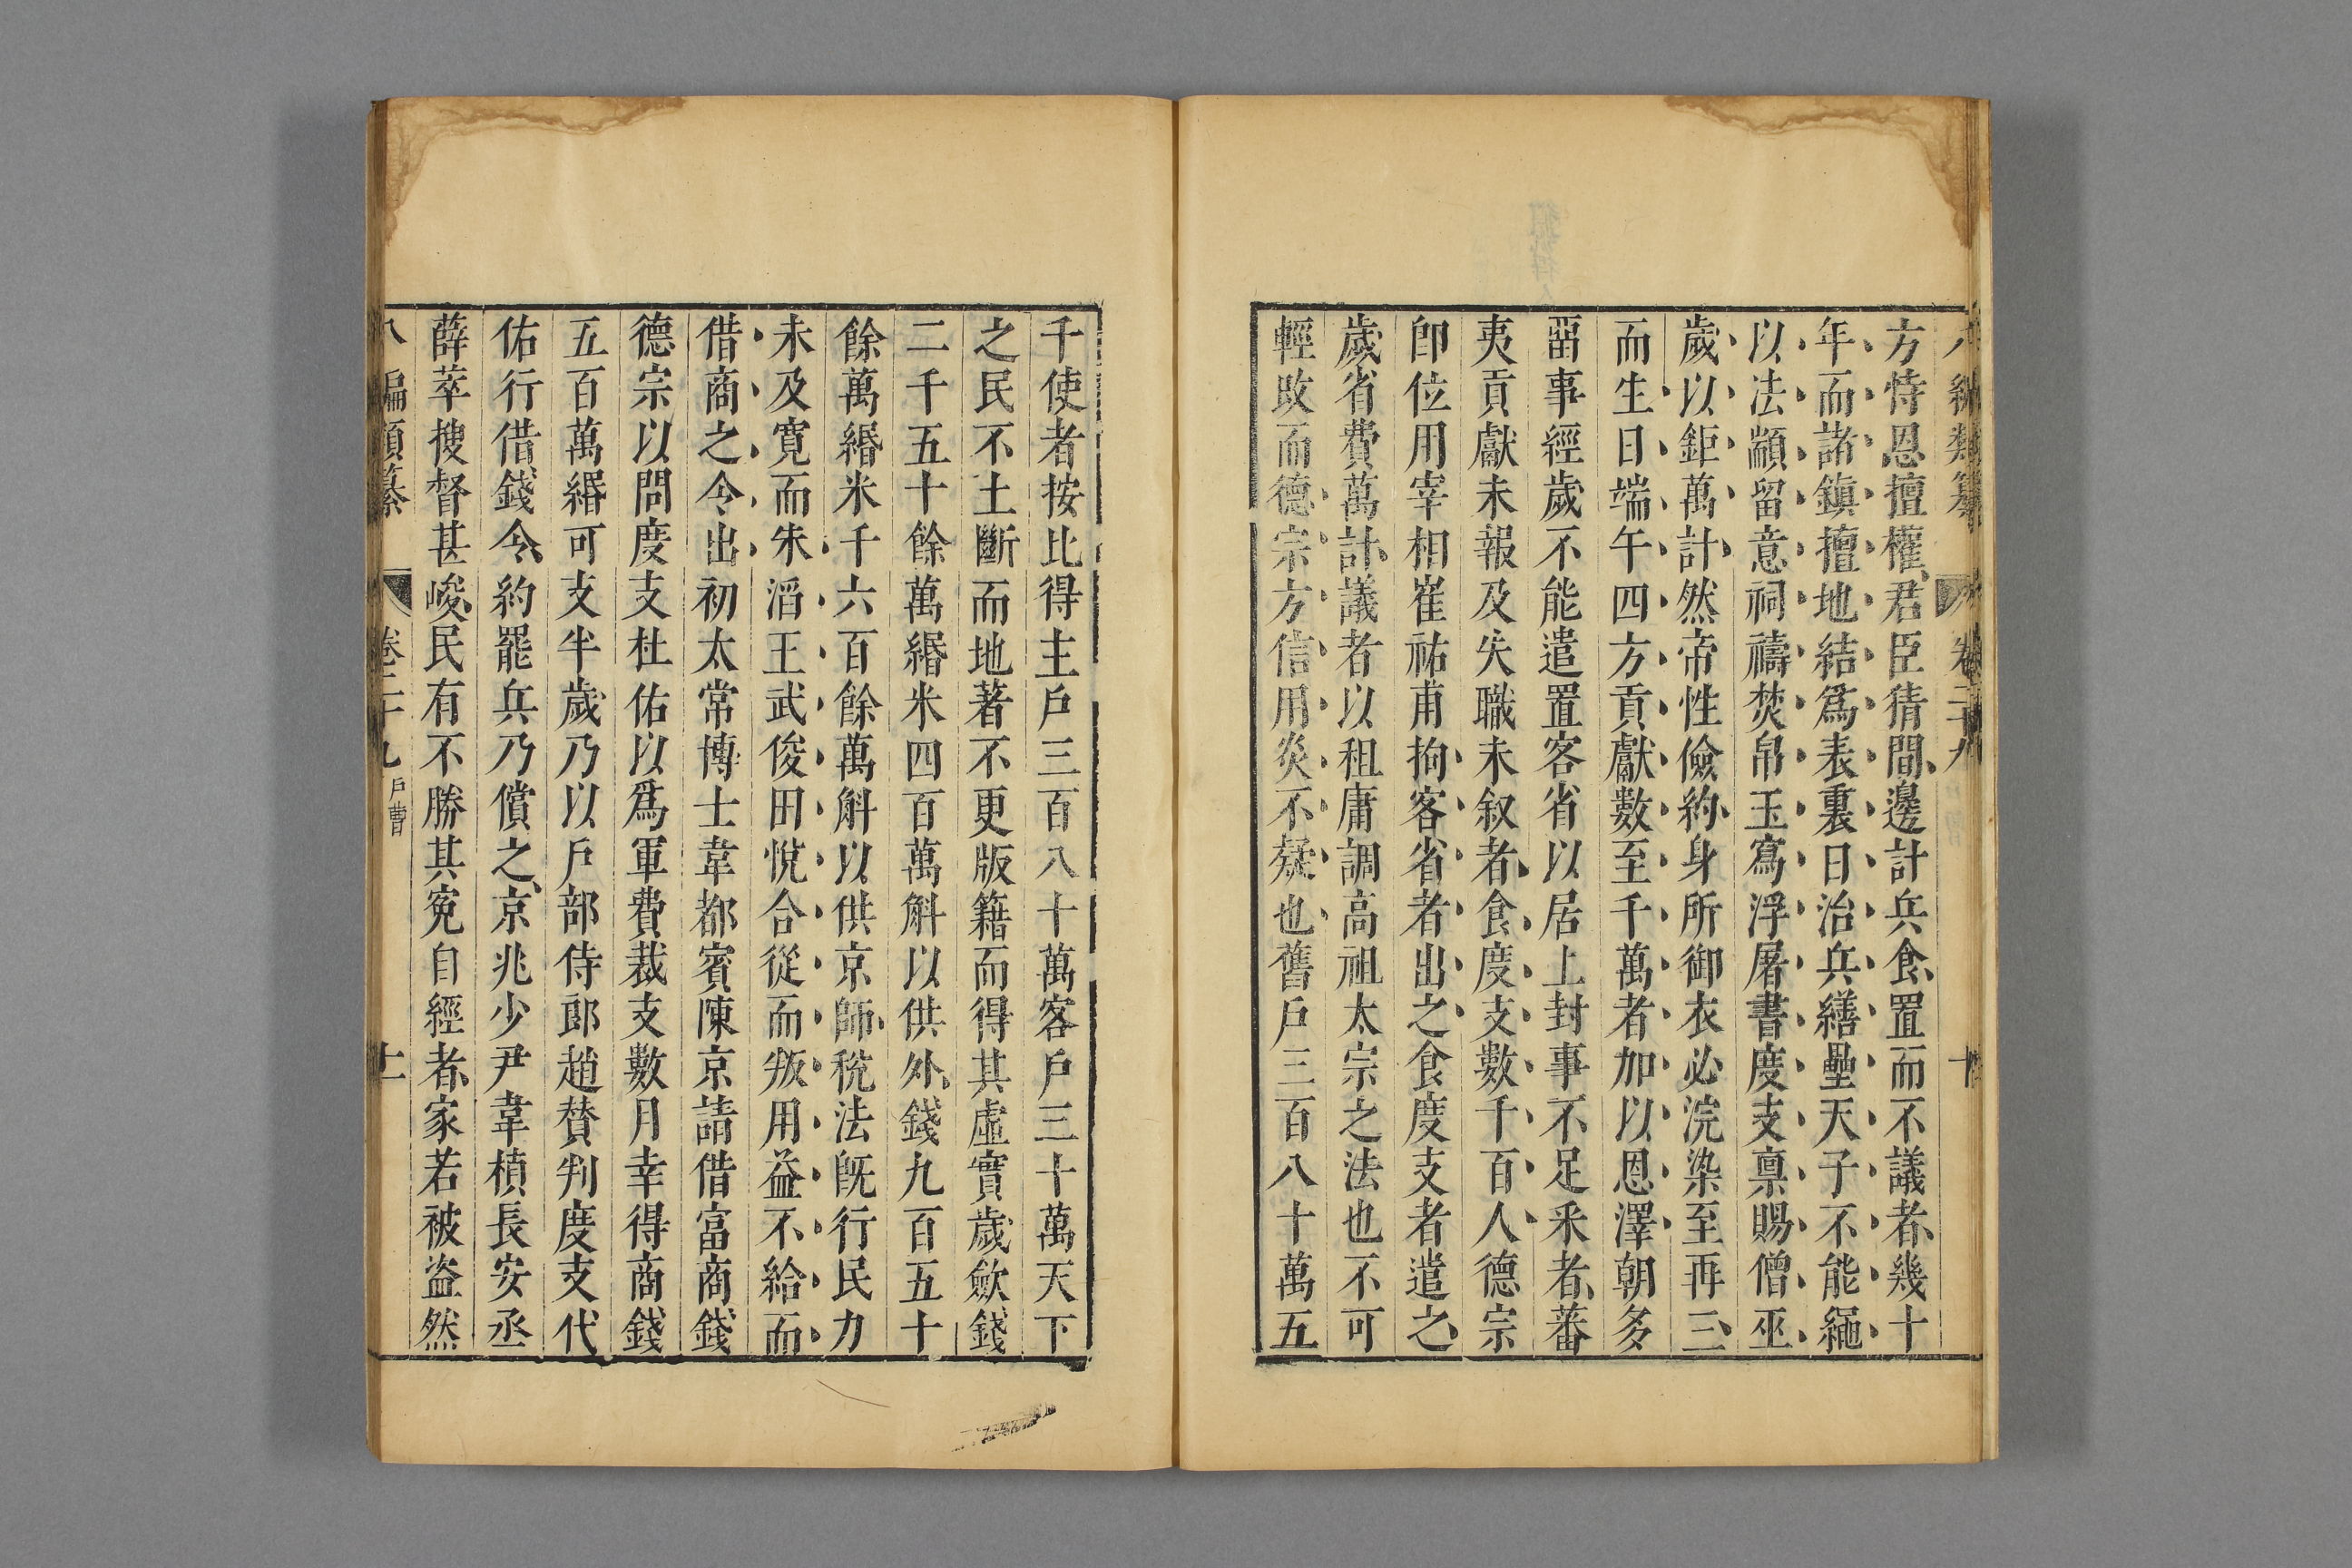 八編類纂 卷二十九 十
方恃恩擅權君臣猜間邊計兵食置而不議者幾十
年而諸鎮擅地結爲表裏日治兵繕壘天子不能繩
以法顓留意祠禱焚帛玉寫浮屠書度支稟賜僧巫
歲以鉅萬計然帝性儉約身所御衣必浣染至再三
而生日端午四方貢獻數至千萬者加以恩澤朝多
畱事經歲不能遣置客省以居上封事不足采者蕃
夷貢獻未報及失職未叙者食度支數千百人德宗
卽位用宰相崔祐甫拘客省者出之食度支者遣之
歲省費萬計議者以租庸調高祖太宗之法也不可
輕改而德宗方信用炎不疑也舊戶三百八十萬五
千使者按比得主戶三百八十萬客戶三十萬天下
之民不土斷而地著不更版籍而得其虛實歲歛錢
二千五十餘萬緡米四百萬斛以供外錢九百五十
餘萬緡米千六百餘萬斛以供京師稅法旣行民力
未及寬而朱滔王武俊田悅合從而叛用益不給而
借商之令出初太常博士韋都賓陳京請借富商錢
德宗以問度支杜佑以爲軍費裁支數月幸得商錢
五百萬緡可支半歲乃以戶部侍郎趙贊判度支代
佑行借錢令約罷兵乃償之京兆少尹韋楨長安丞
薛萃搜督甚峻民有不勝其寃自經者家若被盜然
八編類纂 卷二十九 戶曹 十一